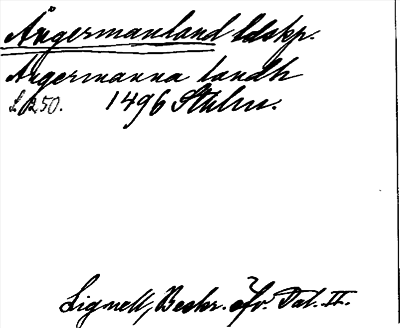 Ångermanland ldskp.
Angermanna landh
s. 250. 1496 Sthlm.
Lignell, Beskr. öfv. Dal. II.